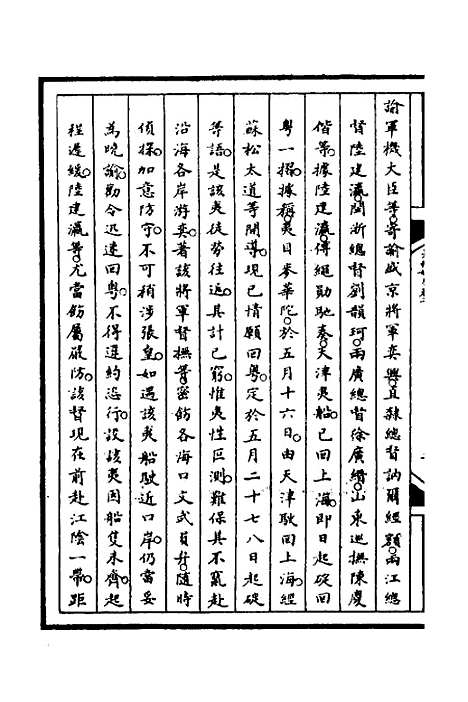 諭軍機大臣等寄諭盛京將軍奕興直隸總督訥爾經額兩江總
督陸建瀛閩浙總督劉韻珂兩廣總督徐廣縉山東巡撫陳慶
偕等據陸建瀛傅繩勛馳奏天津夷船已回上海即日起碇回
粵一摺據稱夷目麥華陀於五月十六日由天津駛回上海經
蘇松太道等開導現已情願回粵定於五月二十七八日起碇
等語是該夷徒勞往返其計已窮惟夷性叵測難保其不竄赴
沿海各岸游奕著該將軍督撫等密飭各海口文武員弁隨時
偵探加意防守不可稍涉張皇如遇該夷船駛近口岸仍當妥
為曉諭勒令迅速回粵不得違約逗行設該夷因船隻未齊起
程遲緩陸建瀛等尤當飭屬嚴防該督現在前赴江陰一帶距